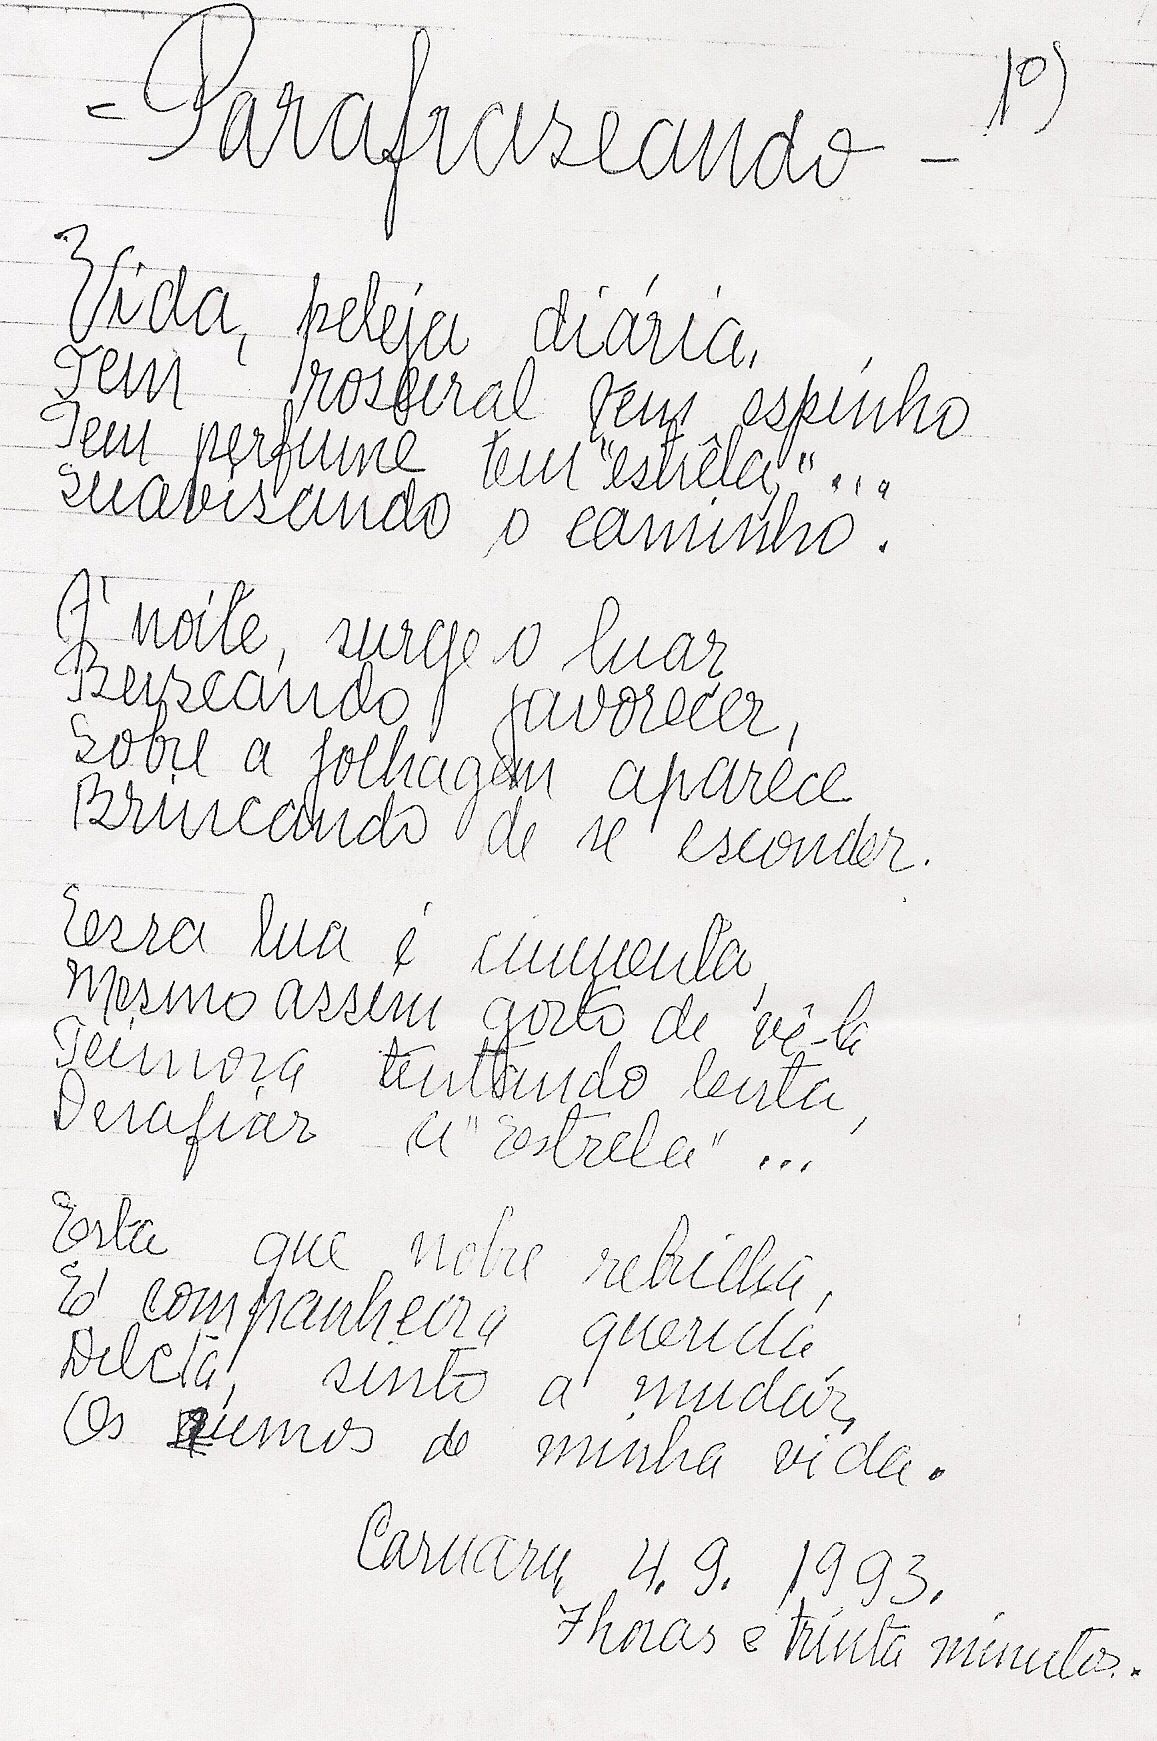 = Parafraseando - 1º)
Vida, peleja diária,
Tem roseiral tem espinho
Tem perfume tem "estrêla," ...
Suavisando o caminho.
À noite, surge o luar
Buscando favorecer,
Sobre a folhagem aparece
Brincando de se esconder.
Essa lua é ciumenta,
Mesmo assim gosto de vê-la
Teimosa tentando lenta,
Desafiar a "Estrela" ...
Esta que nobre rebrilha,
É companheira querida,
Dileta, sinto a mudar,
Os rumos de minha vida.
Caruaru, 4.9. 1993.
7 horas e trinta minutos.